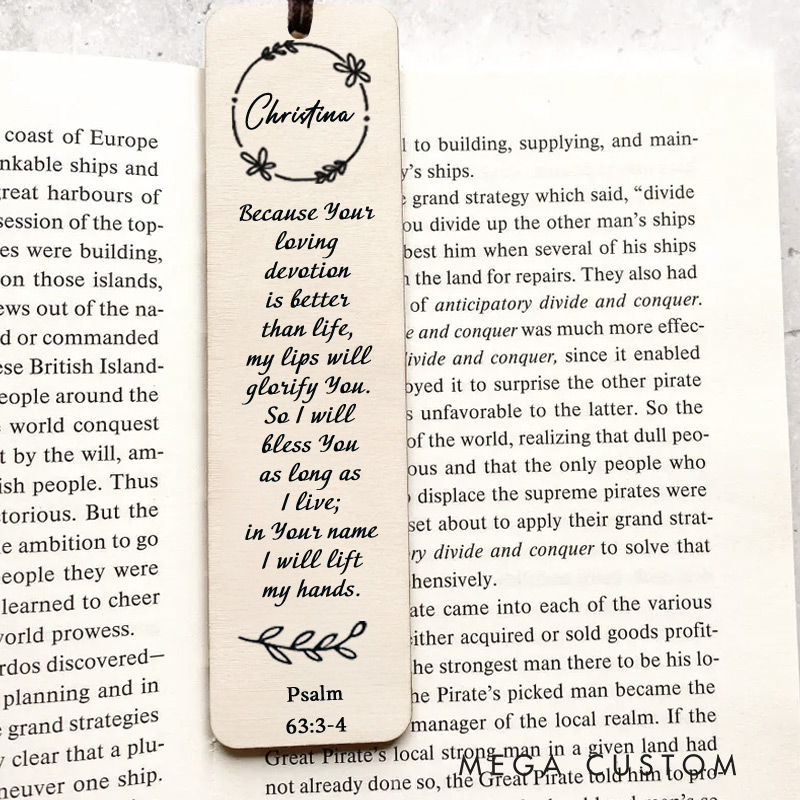 coast of Europe
nkable ships and
reat harbours of
session of the top-
es were building,
on those islands,
ews out of the na-
d or commanded
ese British Island-
eople around the
world conquest
t by the will, am-
ish people. Thus
torious. But the
e ambition to go
eople they were
learned to cheer
world prowess.
rdos discovered—
planning and in
e grand strategies
y clear that a plu-
neuver one ship.
Christina
Because Your
loving
devotion
is better
than life,
my lips will
glorify You.
So I will
bless You
as long as
I live;
in Your name
I will lift
my hands.
Psalm
63:3-4
l to building, supplying, and main-
y's ships.
grand strategy which said, “divide
ou divide up the other man's ships
best him when several of his ships
n the land for repairs. They also had
of anticipatory divide and conquer.
e and conquer was much more effec-
divide and conquer, since it enabled
oyed it to surprise the other pirate
s unfavorable to the latter. So the
of the world, realizing that dull peo-
ous and that the only people who
displace the supreme pirates were
set about to apply their grand strat-
ry divide and conquer to solve that
hensively.
ate came into each of the various
either acquired or sold goods profit-
he strongest man there to be his lo-
he Pirate's picked man became the
manager of the local realm. If the
Great Pirate's local strong-man in a given land had
not already done so, the Great Pirate told him to pro-
MEGA CUSTOM